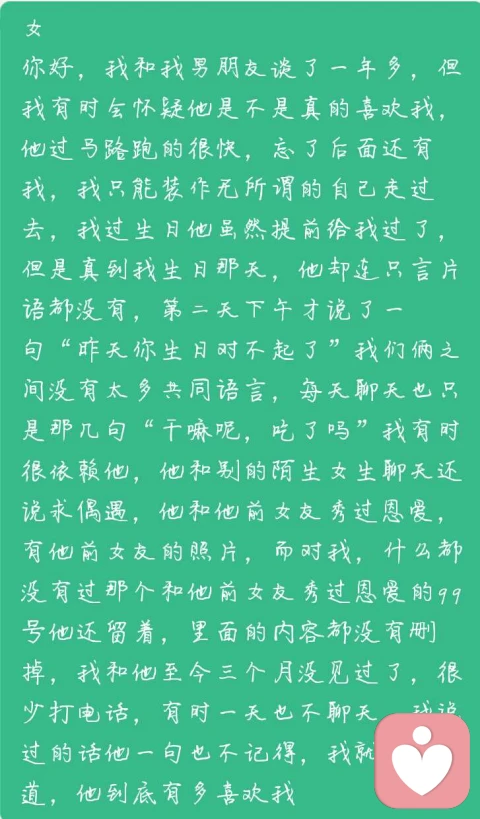 女
你好，我和我男朋友谈了一年多，但
我有时会怀疑他是不是真的喜欢我，
他过马路跑的很快，忘了后面还有
我，我只能装作无所谓的自己走过
去，我过生日他虽然提前给我过了，
但是真到我生日那天，他却连只言片
语都没有，第二天下午才说了一
句“昨天你生日对不起了”我们俩之
间没有太多共同语言，每天聊天也只
是那几句“干嘛呢，吃了吗”我有时
很依赖他，他和别的陌生女生聊天还
说求偶遇，他和他前女友秀过恩爱，
有他前女友的照片，而对我，什么都
没有过那个和他前女友秀过恩爱的qq
号他还留着，里面的内容都没有删
掉，我和他至今三个月没见过了，很
少打电话，有时一天也不聊天，我说
过的话他一句也不记得，我就
道，他到底有多喜欢我